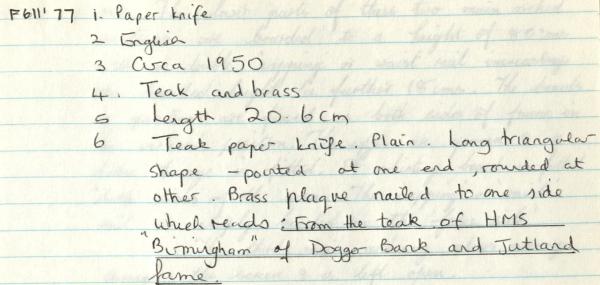 F611'77 1. Paper knife
2 English
3 Circa 1950
4. Teak and brass
5 Length 20.6cm
6 Teak paper knife. Plain. Long triangular
shape - pointed at one end, rounded at
other. Brass plaque nailed to one side
which reads: From the teak of HMS
"Birmingham" of Dogger Bank and Jutland
fame.